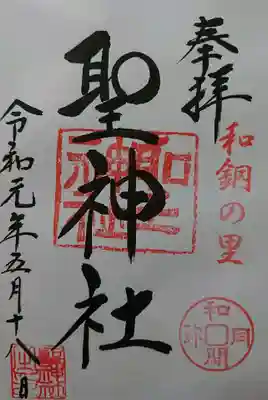 奉拝
和銅の里
聖神社
令和元年五月十八日